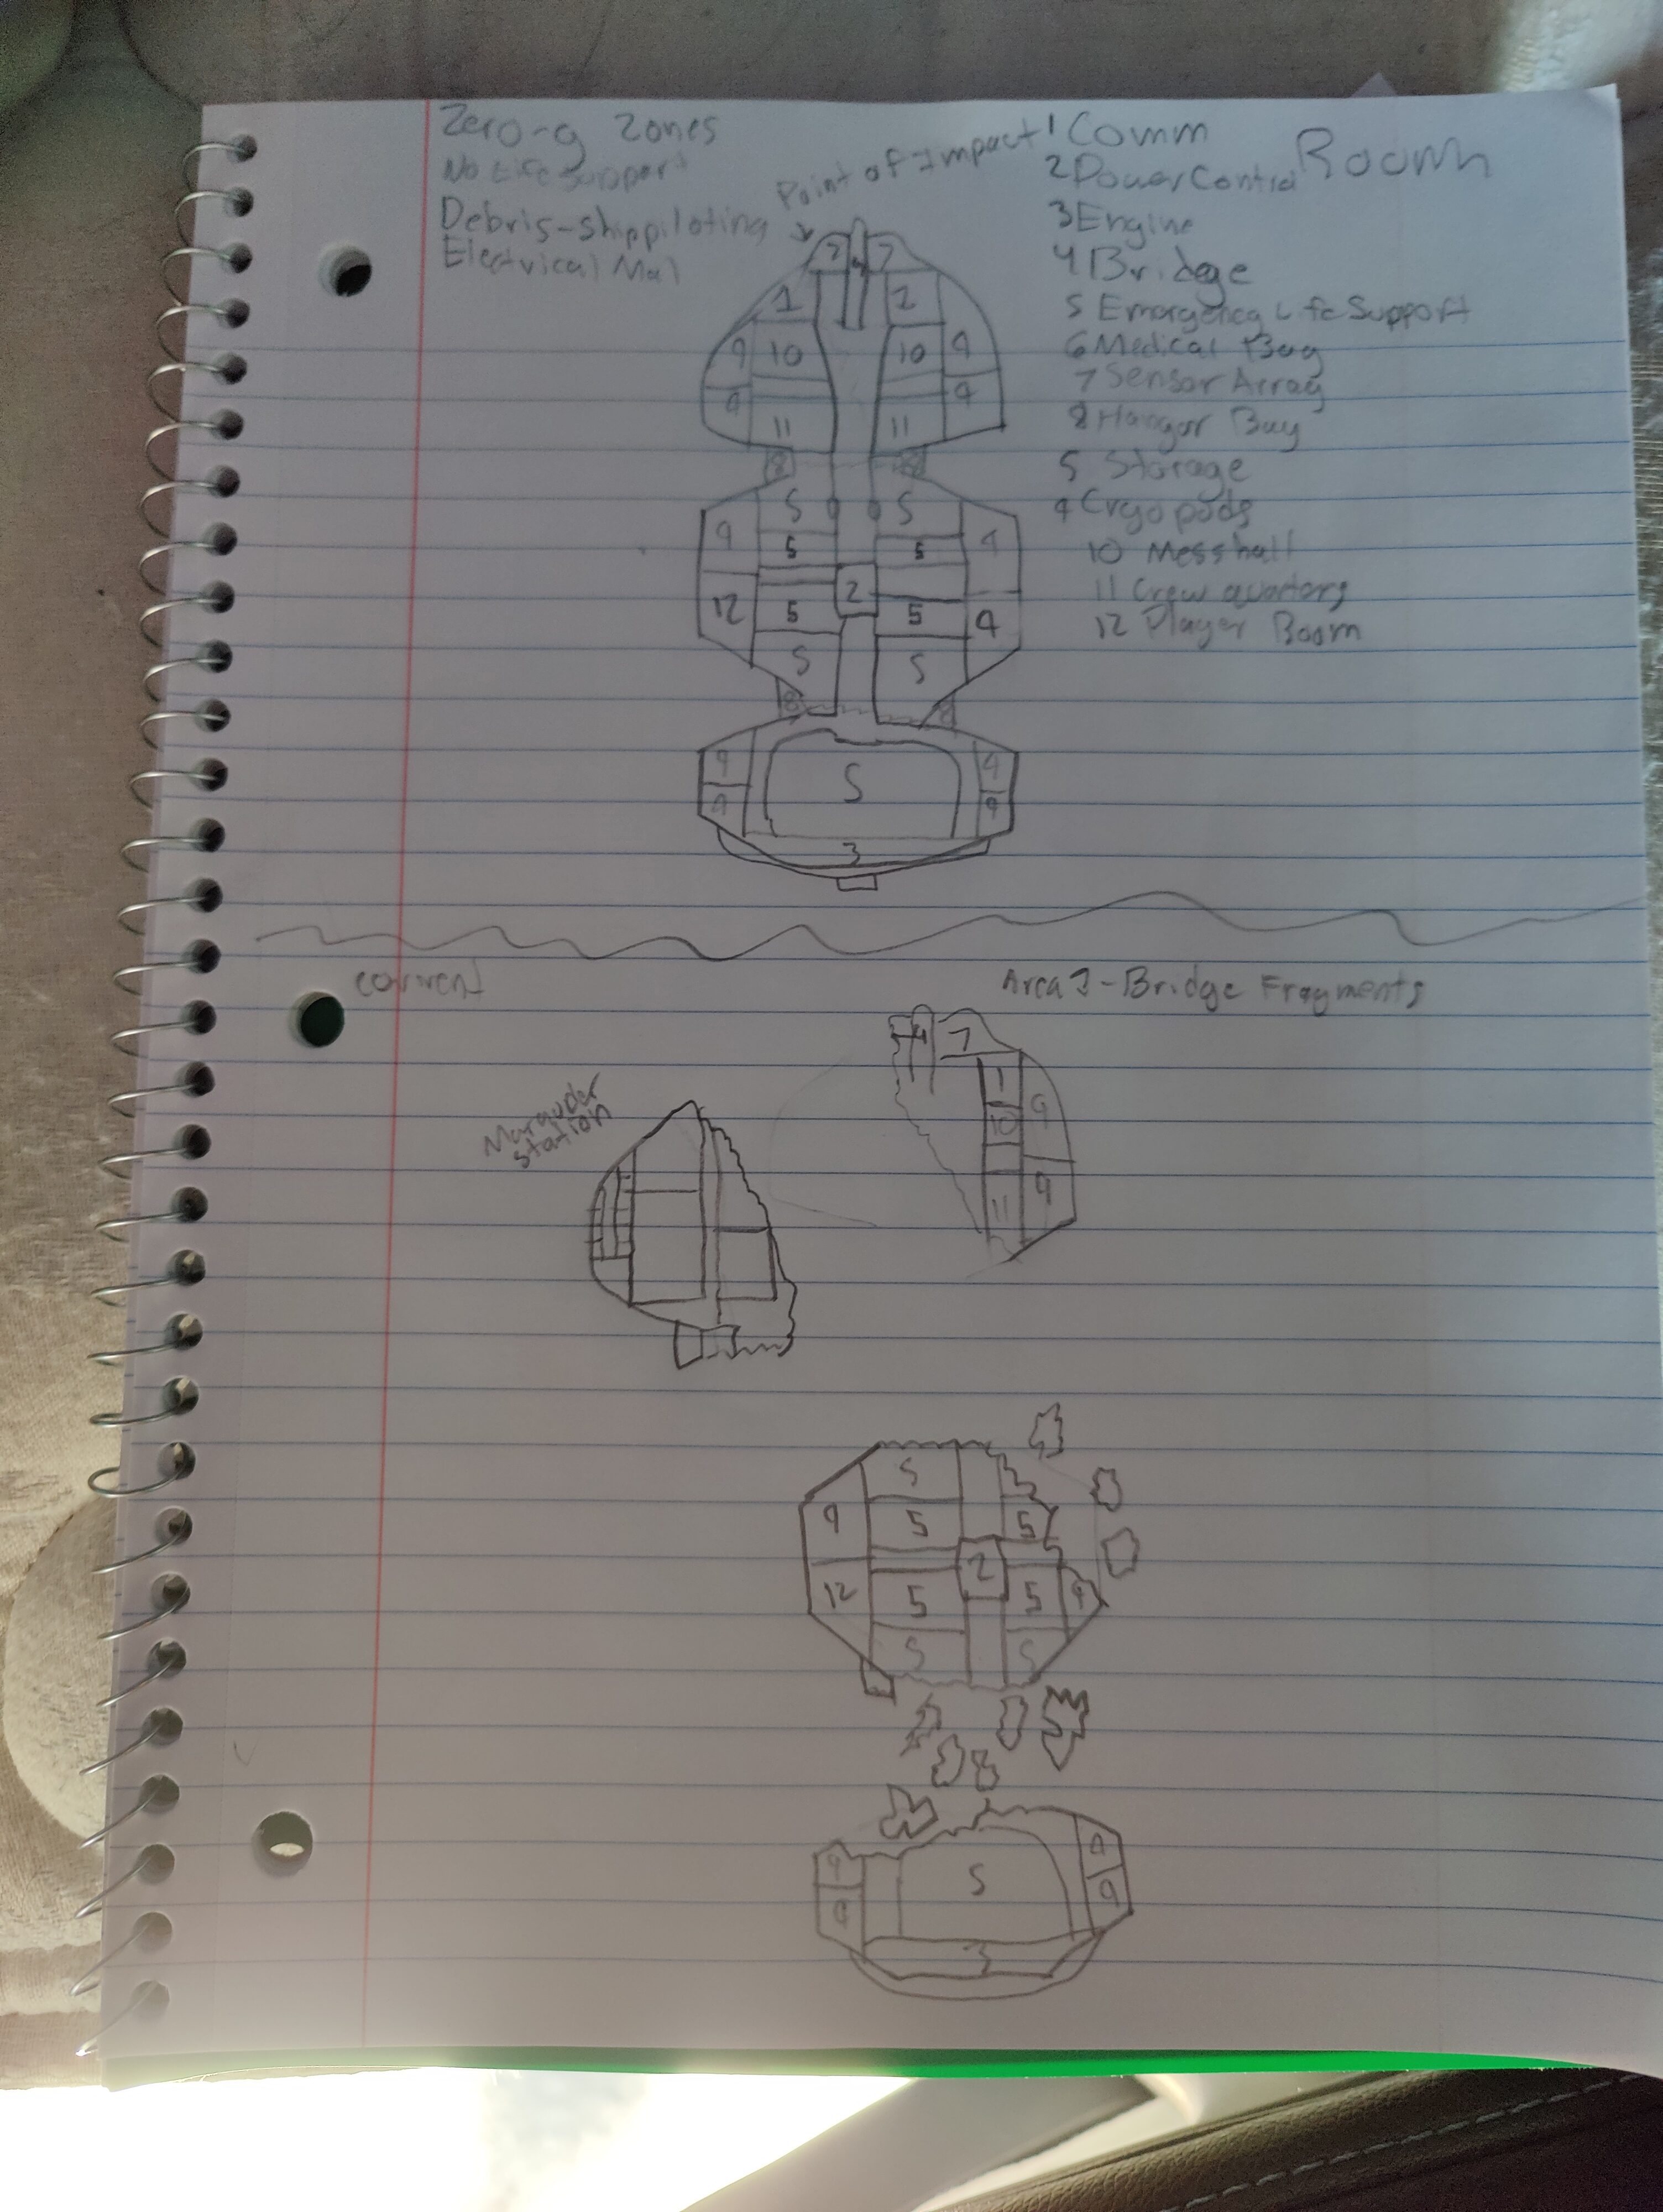 Zero-g Zones
No Life Support
Debris-shippiloting
Electrical Mal
Point of Impact
1 Comm Room
2 Power Control
3 Engine
4 Bridge
5 Emergency Life Support
6 Medical Bay
7 Sensor Array
8 Hangar Bay
S Storage
9 Cryo pods
10 Messhall
11 Crew quarters
12 Player Room
7 4 7
1 1
9 10 10 9
9 11 11 9
8 8
S S
9 5 5 9
2
12 5 5 9
S S
8 8
9 S 9
9 9
3
current
Area 1-Bridge Fragments
Marauder
station
4 7
1
10 9
11 9
S
9 5 5
2
12 5 5 9
S S
9 S 9
9 9
3